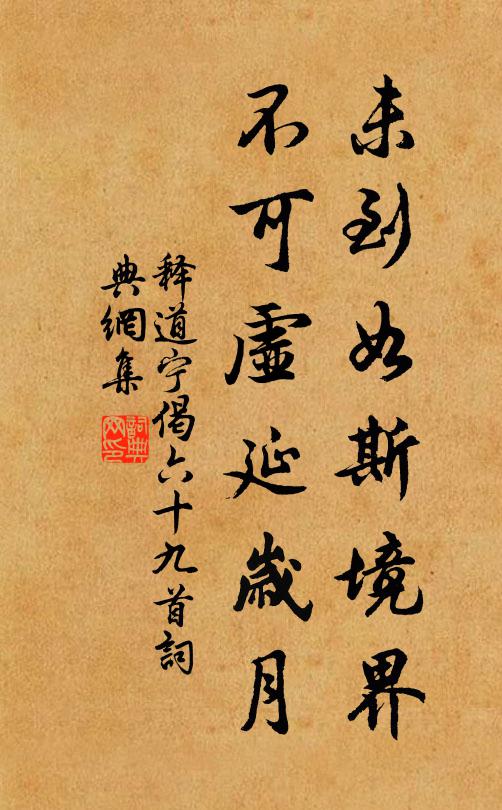 未到如斯境界
不可虚延歲月
释道宁偈六十九首詞
典網集
詞典